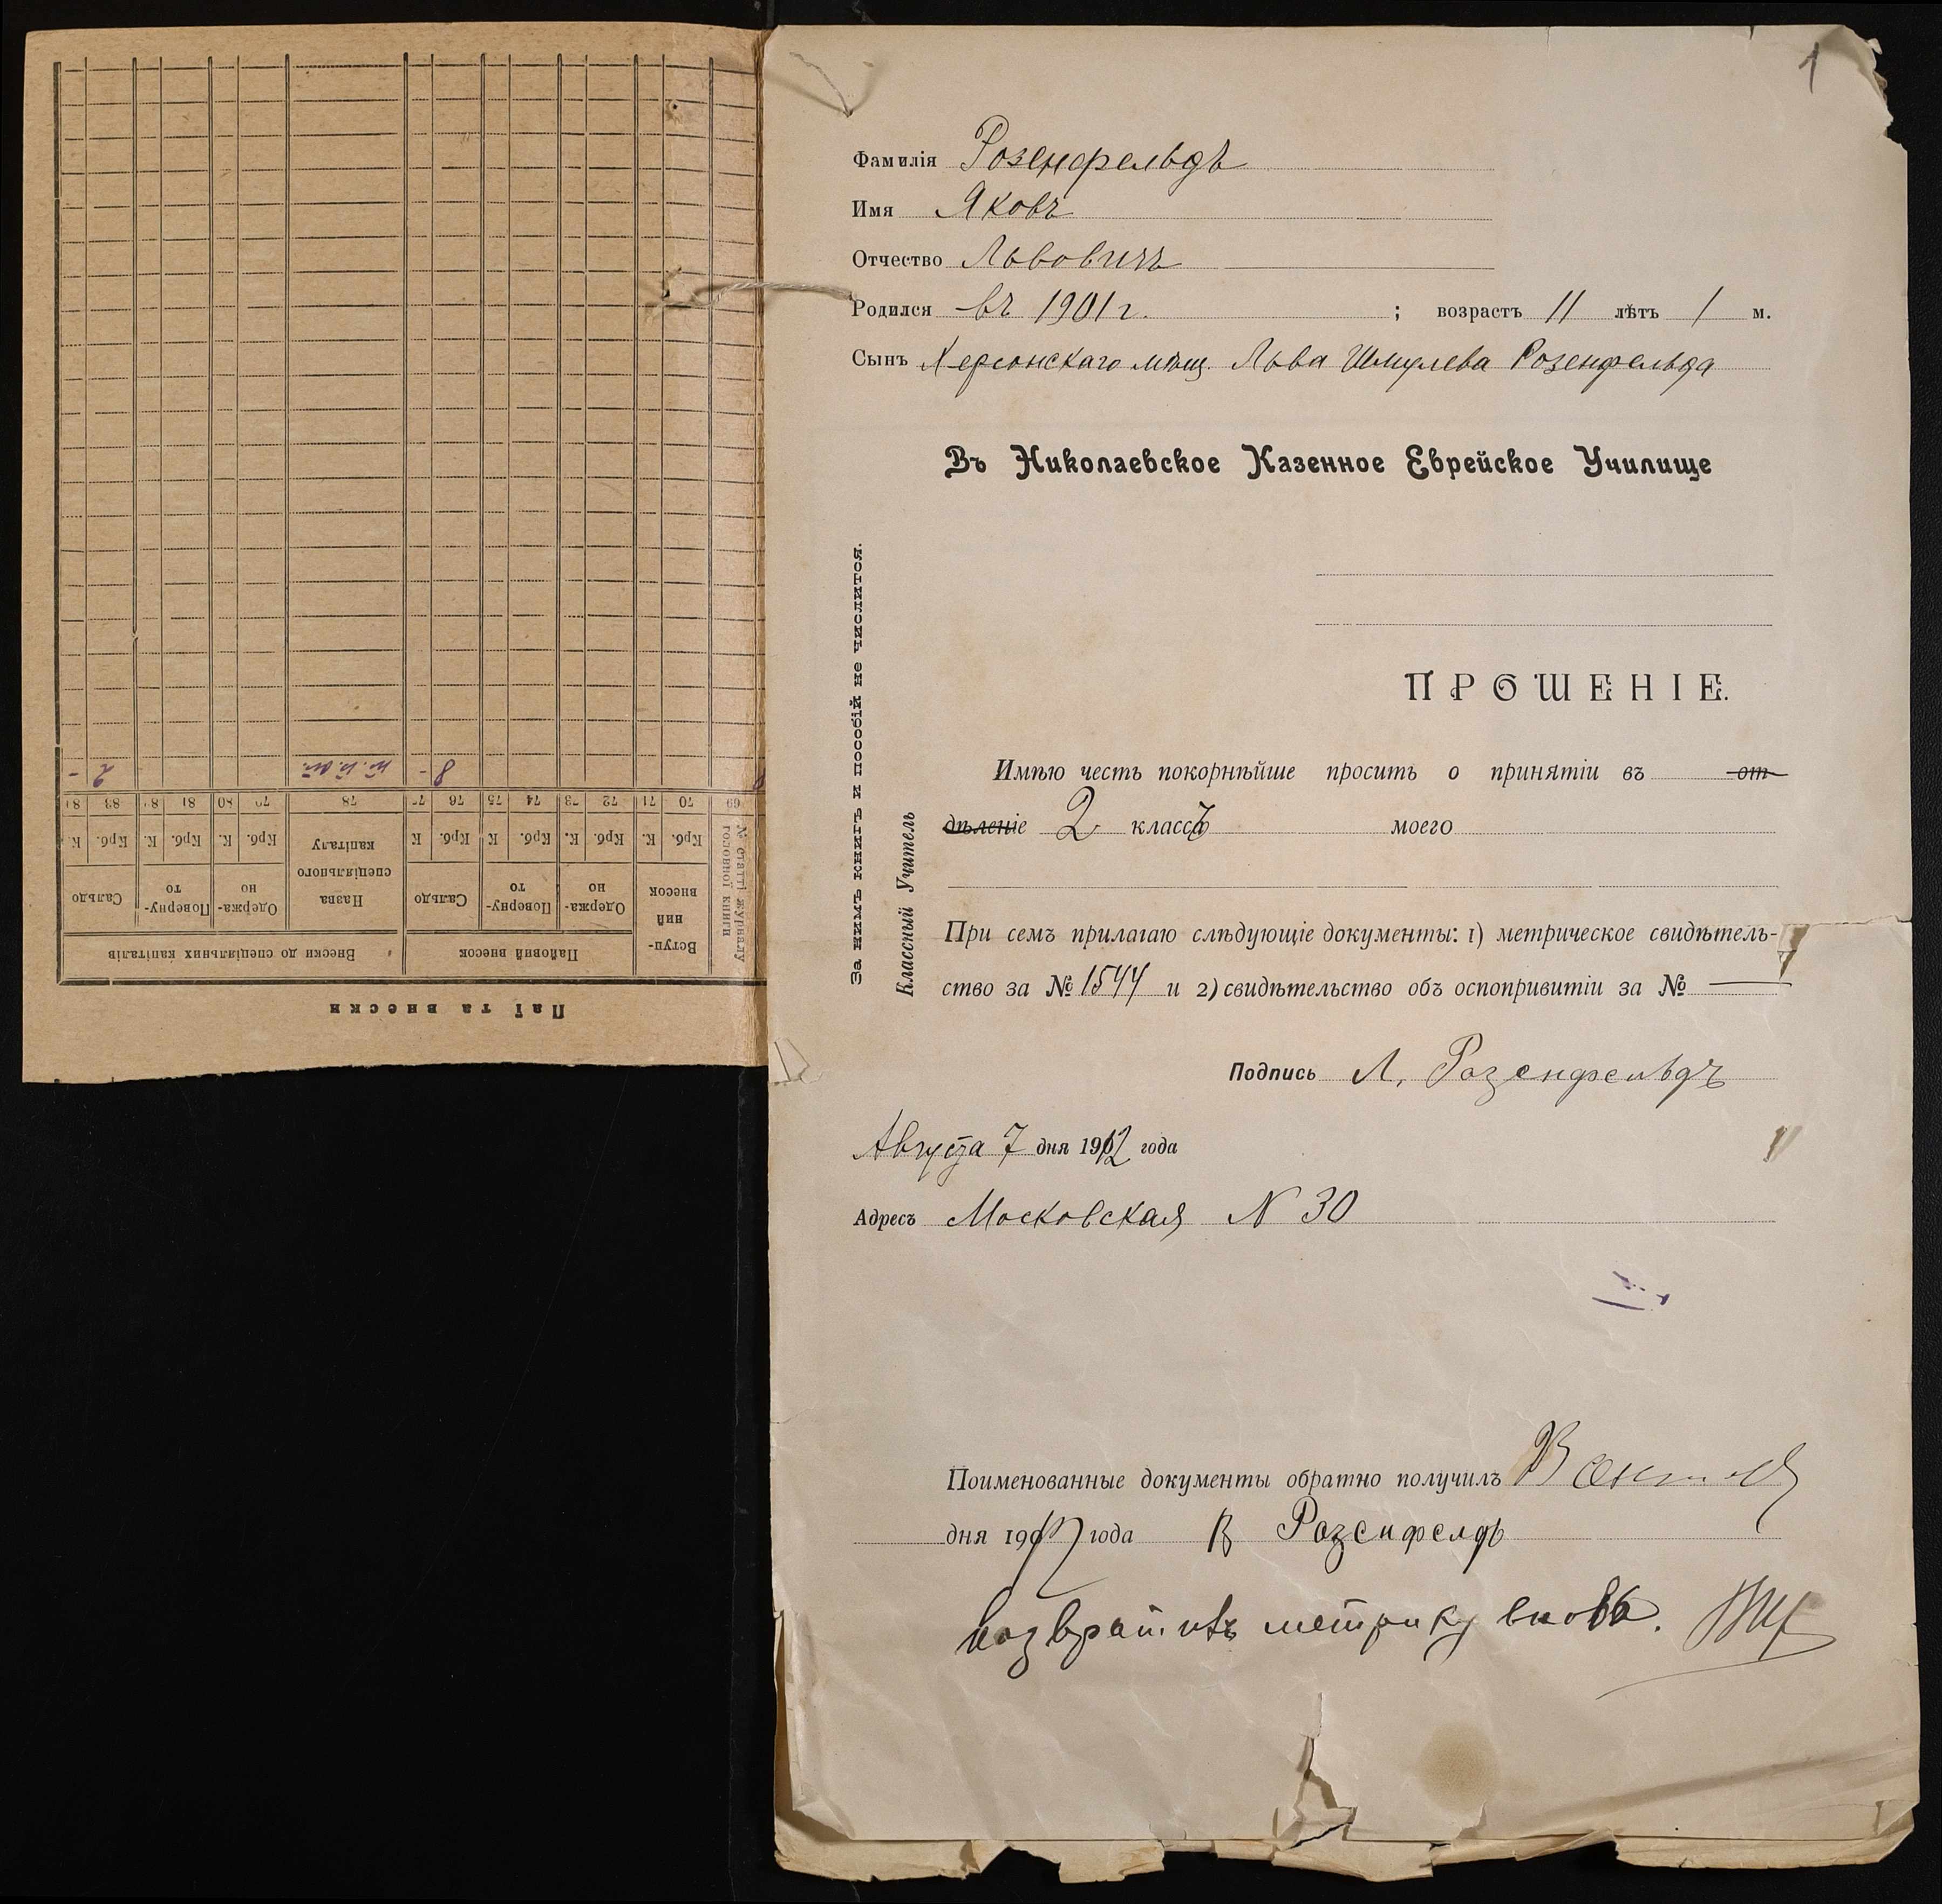 1
Фамилія Розенфельдъ
Имя Яковъ
Отчество Львовичъ
Родился въ 1901 г. ; возрастъ 11 лѣтъ 1 м.
Сынъ Херсонскаго мѣщ. Льва Шмулева Розенфельда
Въ Николаевское Казенное Еврейское Училище
ПРОШЕНІЕ.
Имѣю честь покорнѣйше просить о принятіи въ от-
дѣленіе 2 классъ моего
При семъ прилагаю слѣдующіе документы: 1) метрическое свидѣтель-
ство за № 1544 и 2) свидѣтельство объ оспопривитіи за № —
Подпись Л. Розенфельдъ
Августа 7 дня 1912 года
Адресъ Московская N 30
Поименованные документы обратно получилъ
дня 19 года Розенфелдь
возвратить метрику вновь.
За нимъ книгъ и пособій не числится.
Классный Учитель
Паї та внески
Вступ-
ний
внесок
Пайовий внесок
Внески до спеціяльних капіталів
№ статті журналу
головної книги
Одержа-
но
Поверну-
то
Сальдо
Назва
спеціяльного
капіталу
Одержа-
но
Поверну-
то
Сальдо
Крб. К. Крб. К. Крб. К Крб. К Крб. К. Крб. К. Крб. К
69 70 71 72 73 74 75 76 77 78 79 80 81 82 83 84
8 - 2 -